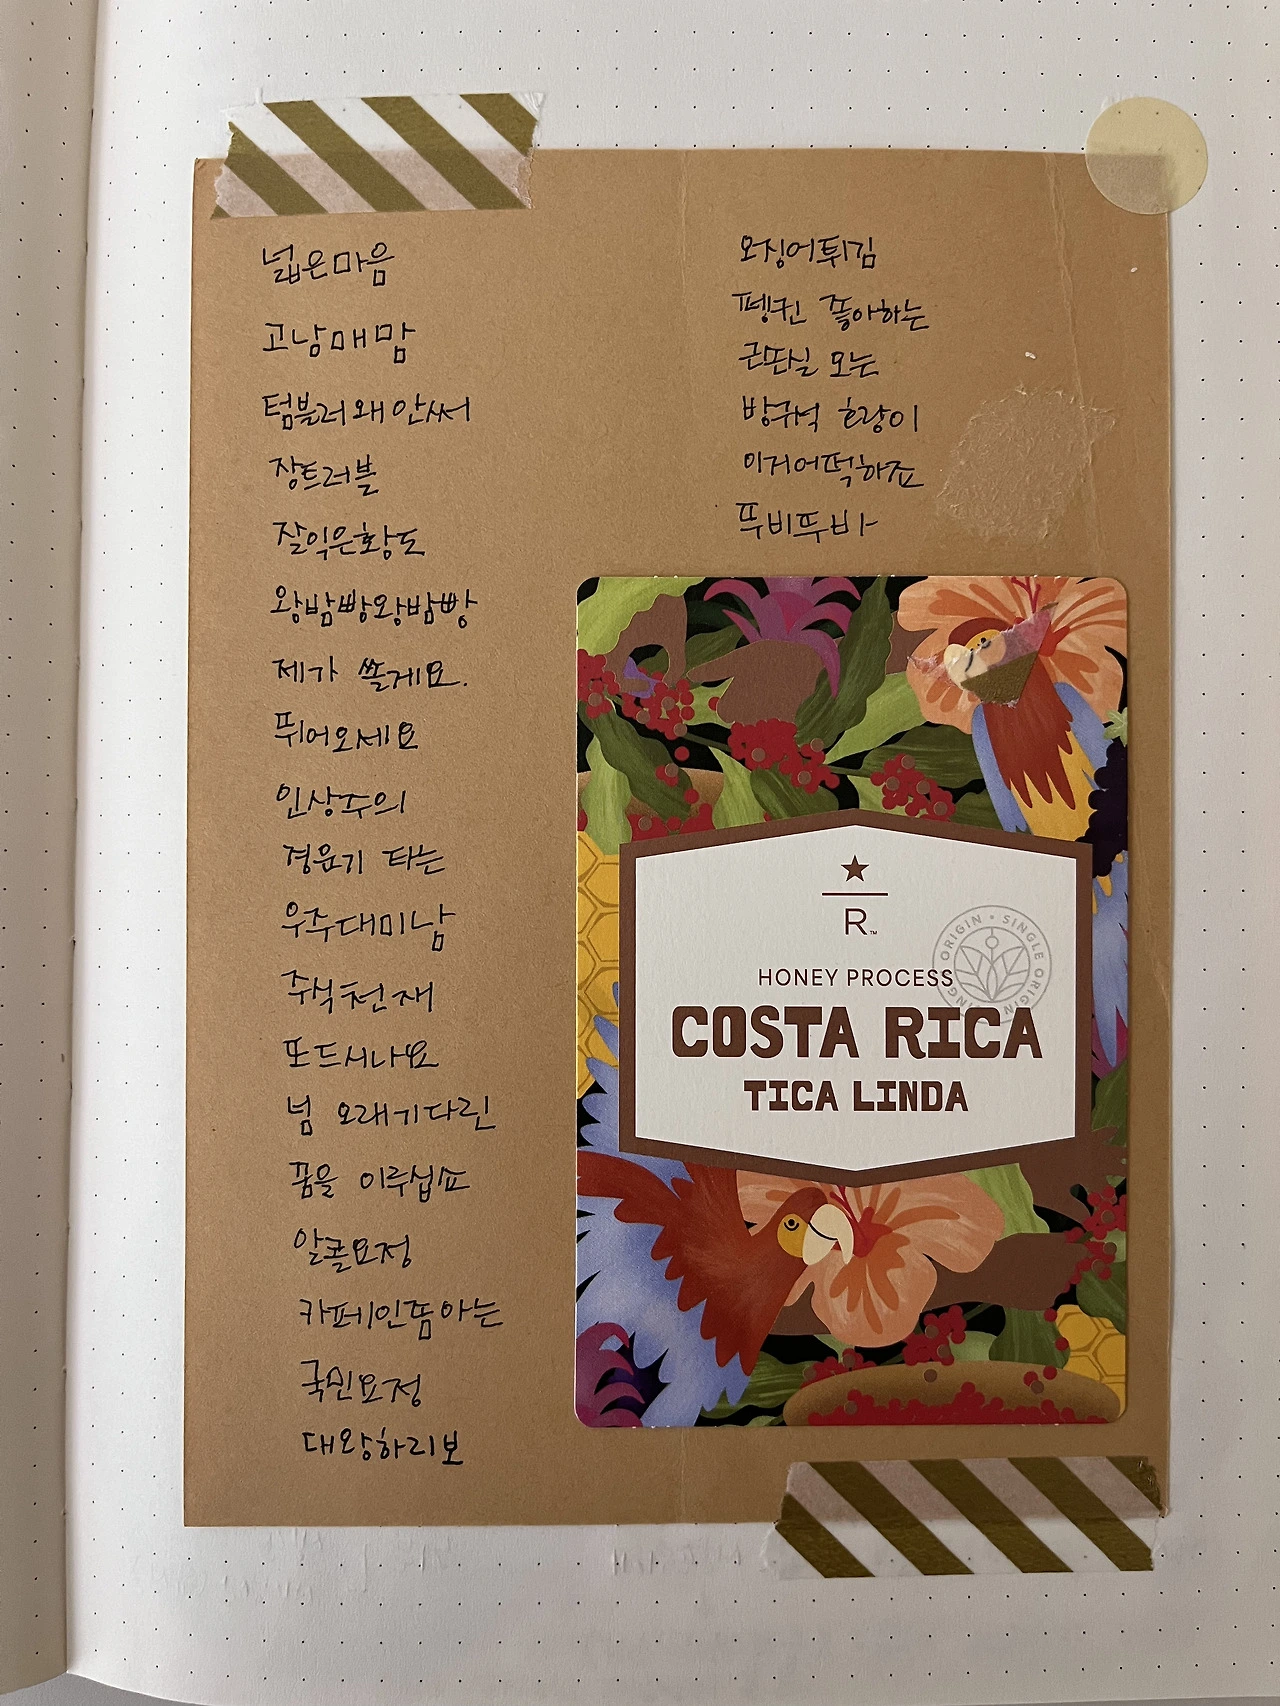 넓은마음
고남매맘
텀블러왜안써
장트러블
잘익은황도
왕밤빵왕밤빵
제가 쏠게요.
뛰어오세요
인상주의
경운기 타는
우주대미남
주식천재
또드시나요
넘 오래기다린
꿈을 이루십쇼
알콜요정
카페인뿜아는
국민요정
대왕하리보
오징어튀김
펭귄 좋아하는
근손실 오는
방구석 호랑이
이거어떡하죠
뚜비뚜바
R™
HONEY PROCESS
COSTA RICA
TICA LINDA
SINGLE ORIGIN • SINGLE ORIGIN